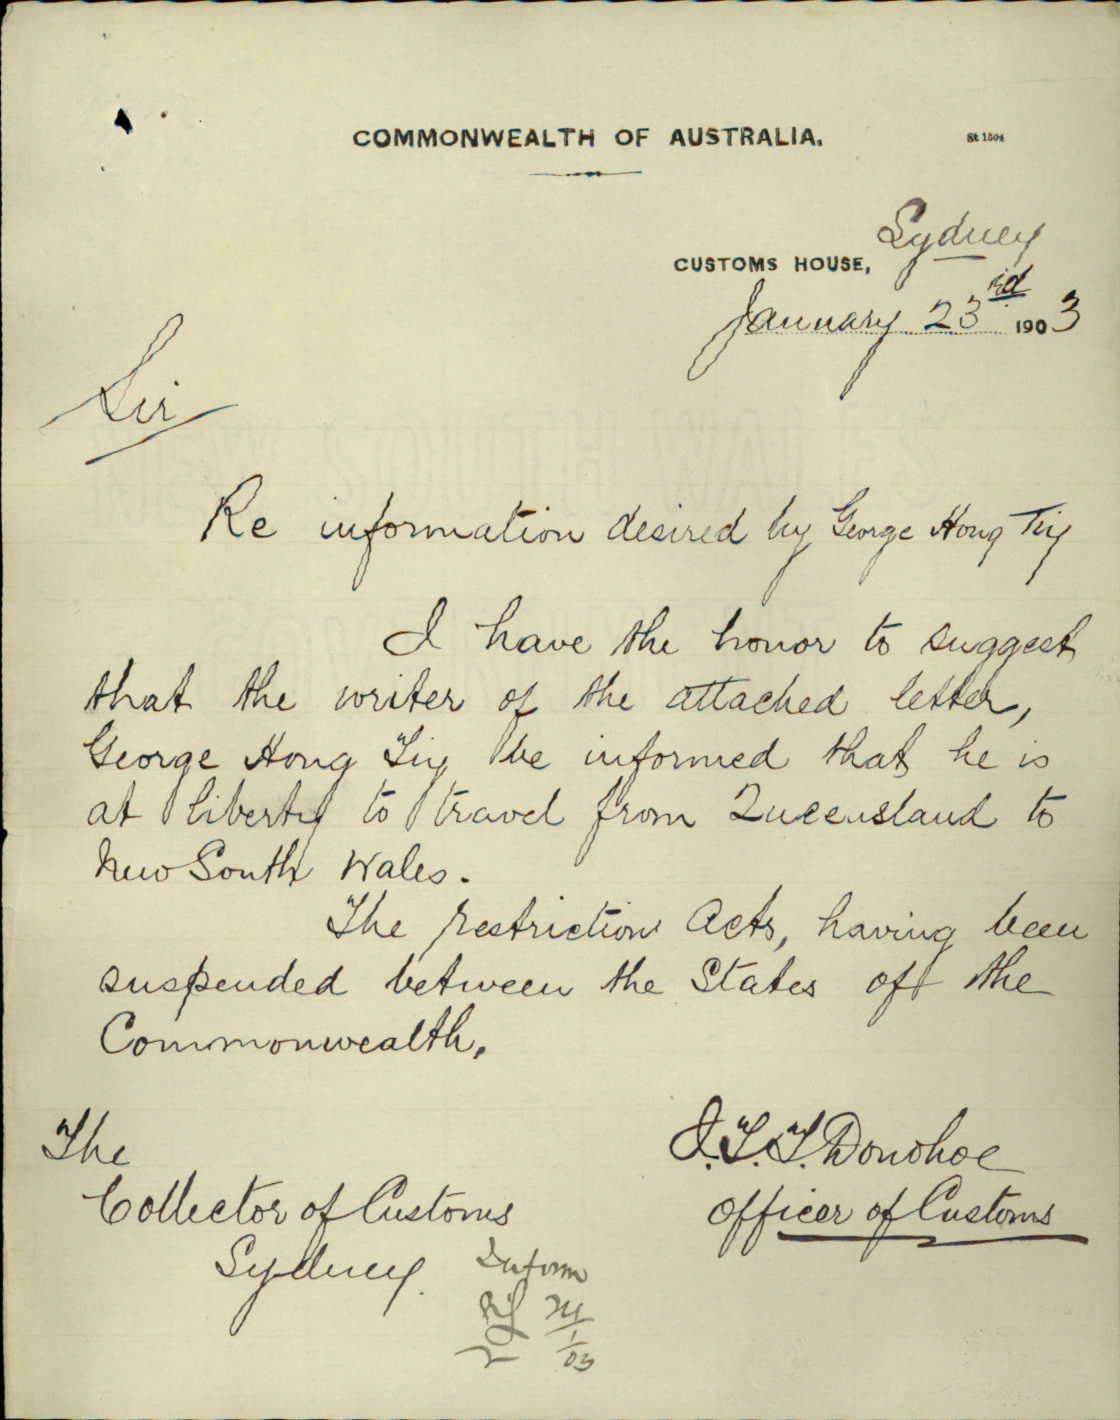 COMMONWEALTH OF AUSTRALIA.
St 1504
Sydney
CUSTOMS HOUSE,
January 23rd 1903
Sir
Re information desired by George Hong Tiy
I have the honor to suggest
that the writer of the attached letter,
George Hong Tiy be informed that he is
at liberty to travel from Queensland to
New South Wales.
The restriction Acts, having been
suspended between the States of the
Commonwealth.
The
Collector of Customs
Sydney.
J.T.T. Donohoe
Officer of Customs
Inform
1
03